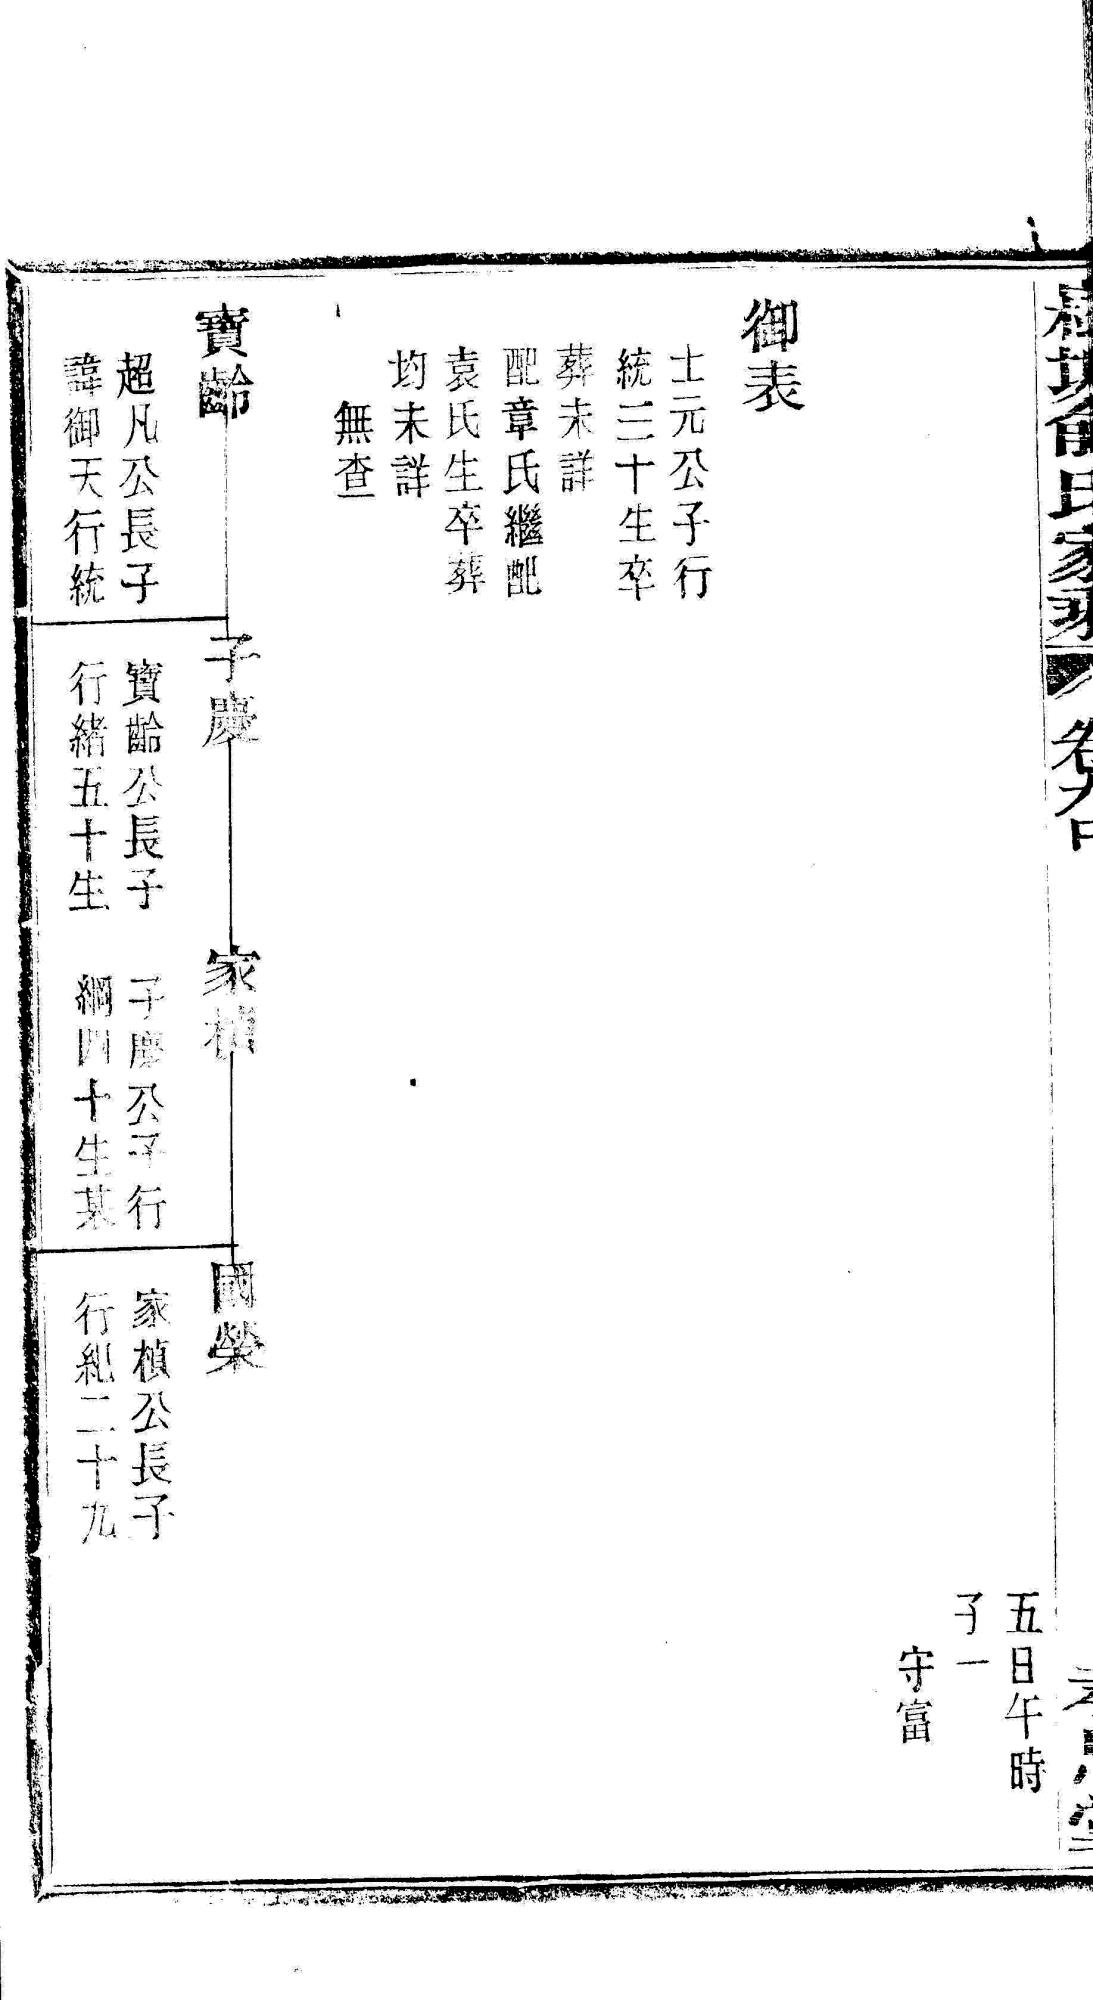 俞氏家乘
卷九中
五日午時
子一
守富
御表
士元公子行
統三十生卒
葬未詳
配章氏繼配
袁氏生卒葬
均未詳
無查
寶齡
超凡公長子
諱御天行統
子慶
寶齡公長子
行緒五十生
家楨
子慶公子行
綱四十生某
國榮
家楨公長子
行紀二十九